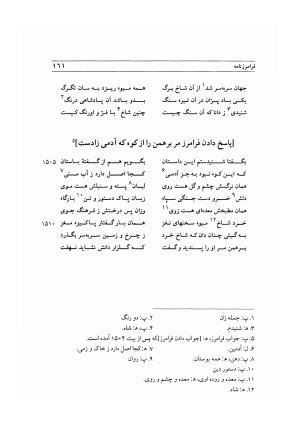 فرامرزنامه ۱۶۱
جهان سربه‌سر شد۱ از آن شاخ برگ همه میوه ریزد به سان تگرگ
یکی باد پرّان در آن تیره سنگ بدو باشد آن پادشاهی درنگ۲
شنیدی۳ ز دانا که آن سنگ چیست چنین شاخ۴ با فرّ و اورنگ کیست
[پاسخ دادن فرامرز مر برهمن را از کوه که آدمی زادست]۵
بگفتا شنیدستم این داستان بگویم هم از گفتهٔ باستان ۱۵۰۵
که این کوه نبود به جز آدمی۶ کجا اصل دارد ز آب منی۷
همان نرگسش چشم و گل هست روی لبان۸ پسته و سنبلش هست موی
دلش۹ خسرو دست جنگی سپاه زبان پاک دستور و تن۱۰ بارگاه
همان مطبخش معده‌ای هست زوی۱۱ وزان پس درختش ز فرهنگ جوی
خرد شاخ۱۲ میوه سخنهای نغز همان بار گفتار پاکیزه مغز ۱۵۱۰
به گیتی چنان دان که شاخ خرد ز چرخ و زمین سربه‌سر بگذرد
برهمن مر او را پسندید و گفت که گلزار دانش نشاید نهفت
۱. پ: جمله زان ۲. پ: دو رنگ
۳. ه‍: شنیدم. ۴. پ، ه‍: شاه.
۵. پ: جواب فرامرز؛ ه‍: [جواب دادن فرامرز] که پس از بیت ۱۵۰۴ آمده است.
۶. ل: آدمین. ۷. ه‍: کجا اصل دارد ز خاک و زمی.
۸. پ: دهن، ه‍: همه بوستان. ۹. پ: روان
۱۰. پ: دستور دین
۱۱. پ: معده و روده اوی، ه‍: معده و چشم و روی.
۱۲. ه‍: شاه.